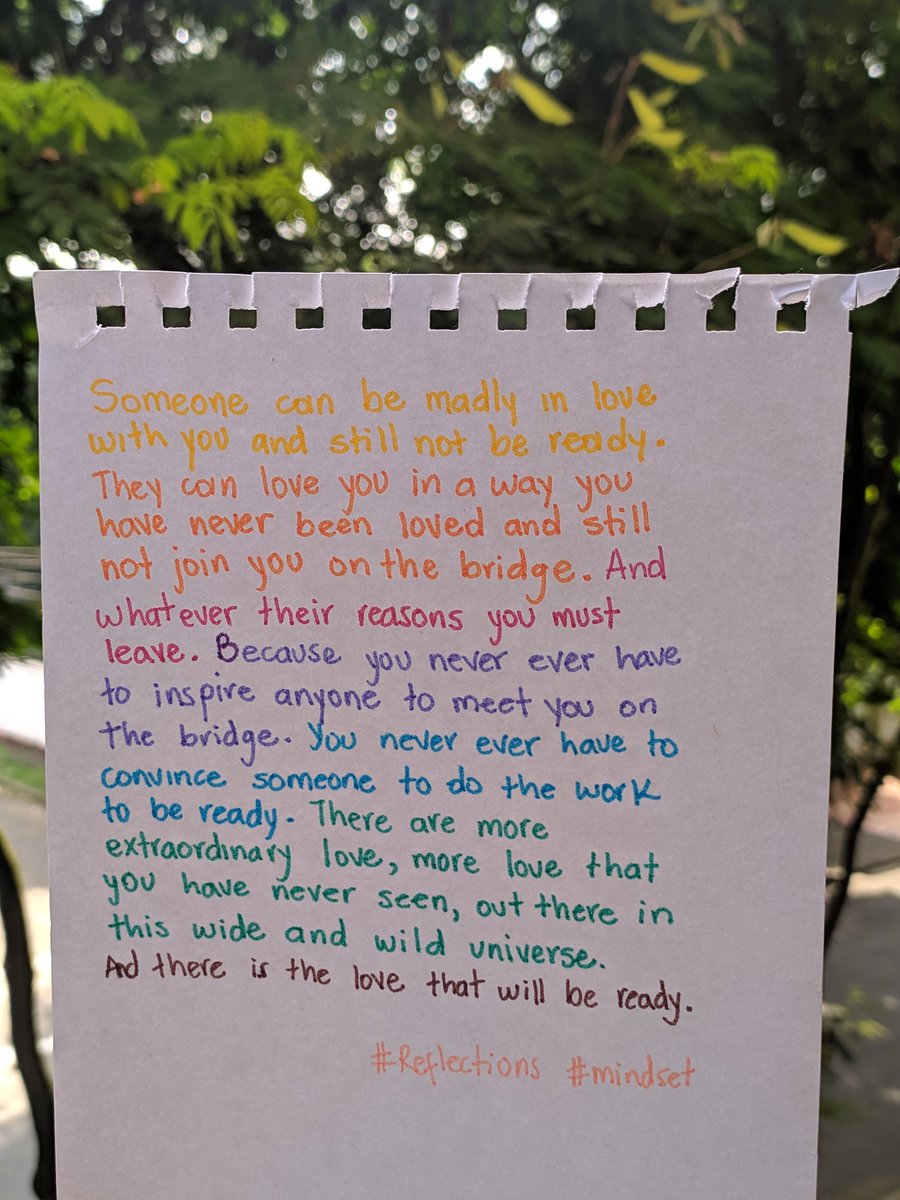 Someone can be madly in love
with you and still not be ready.
They can love you in a way you
have never been loved and still
not join you on the bridge. And
whatever their reasons you must
leave. Because you never ever have
to inspire anyone to meet you on
the bridge. You never ever have to
convince someone to do the work
to be ready. There are more
extraordinary love, more love that
you have never seen, out there in
this wide and wild universe.
And there is the love that will be ready.
#Reflections #mindset